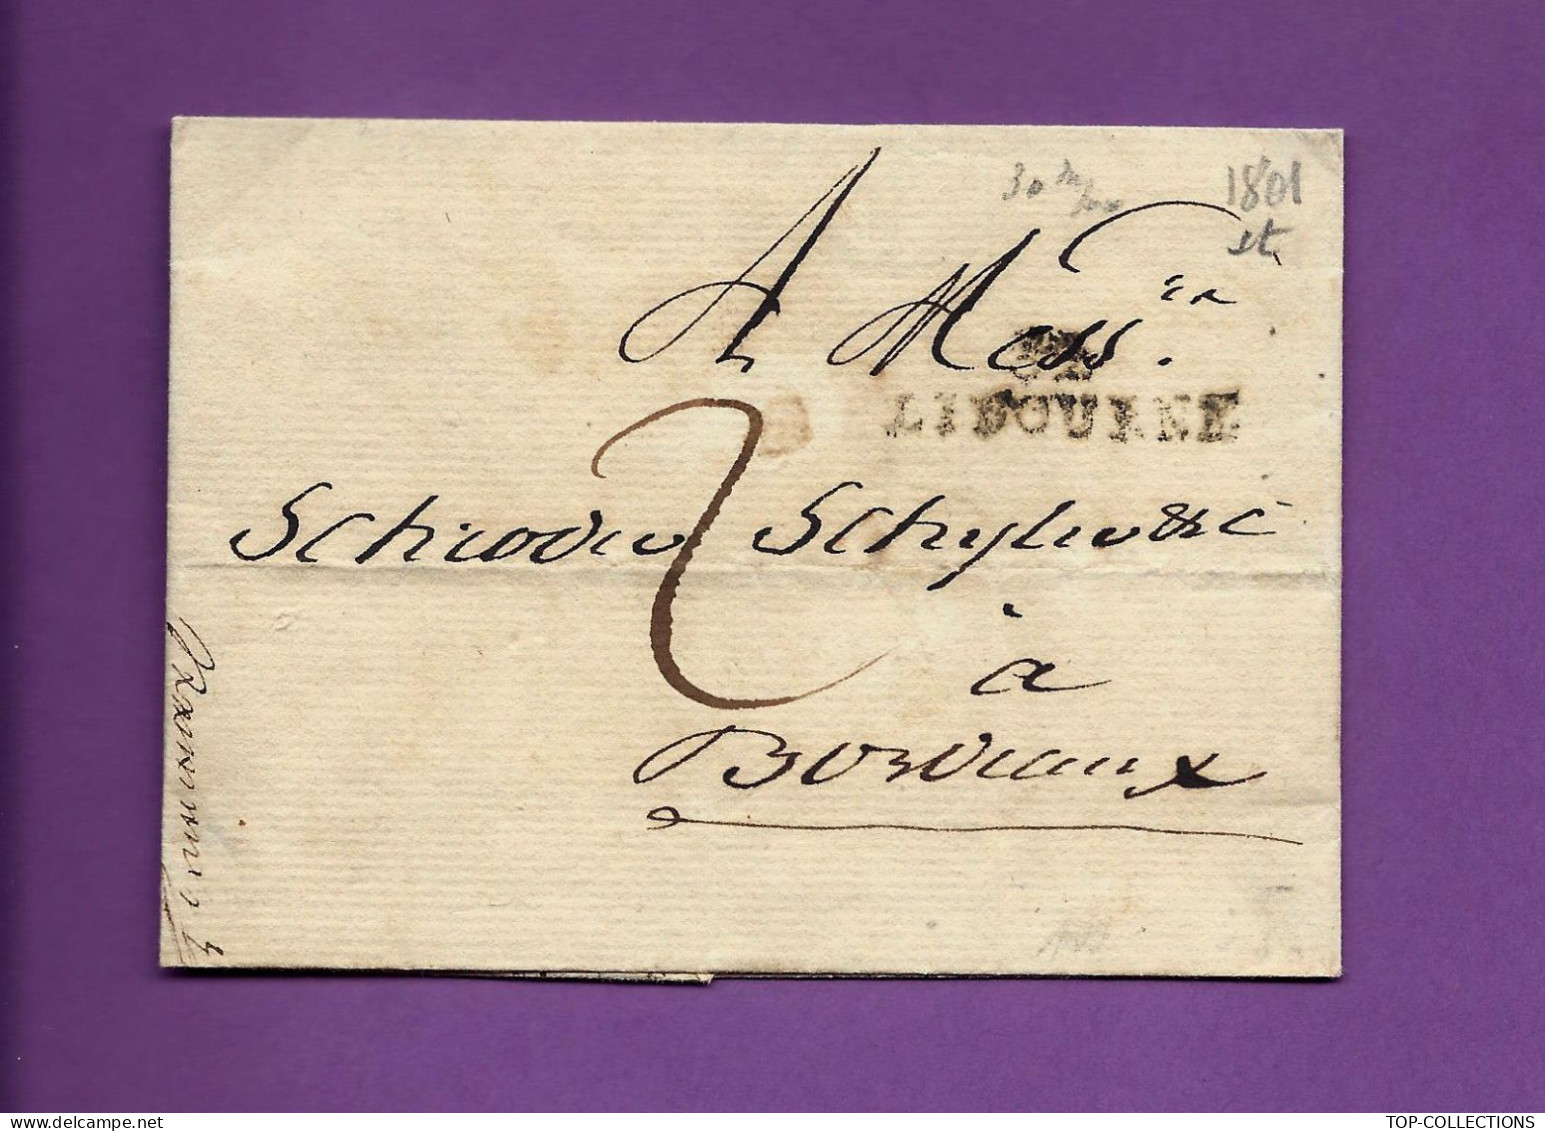 1801
A Mess.rs
LIBOURNE
2
Schroder Schyler & C
à
Bordeaux
www.delcampe.net
TOP-COLLECTIONS